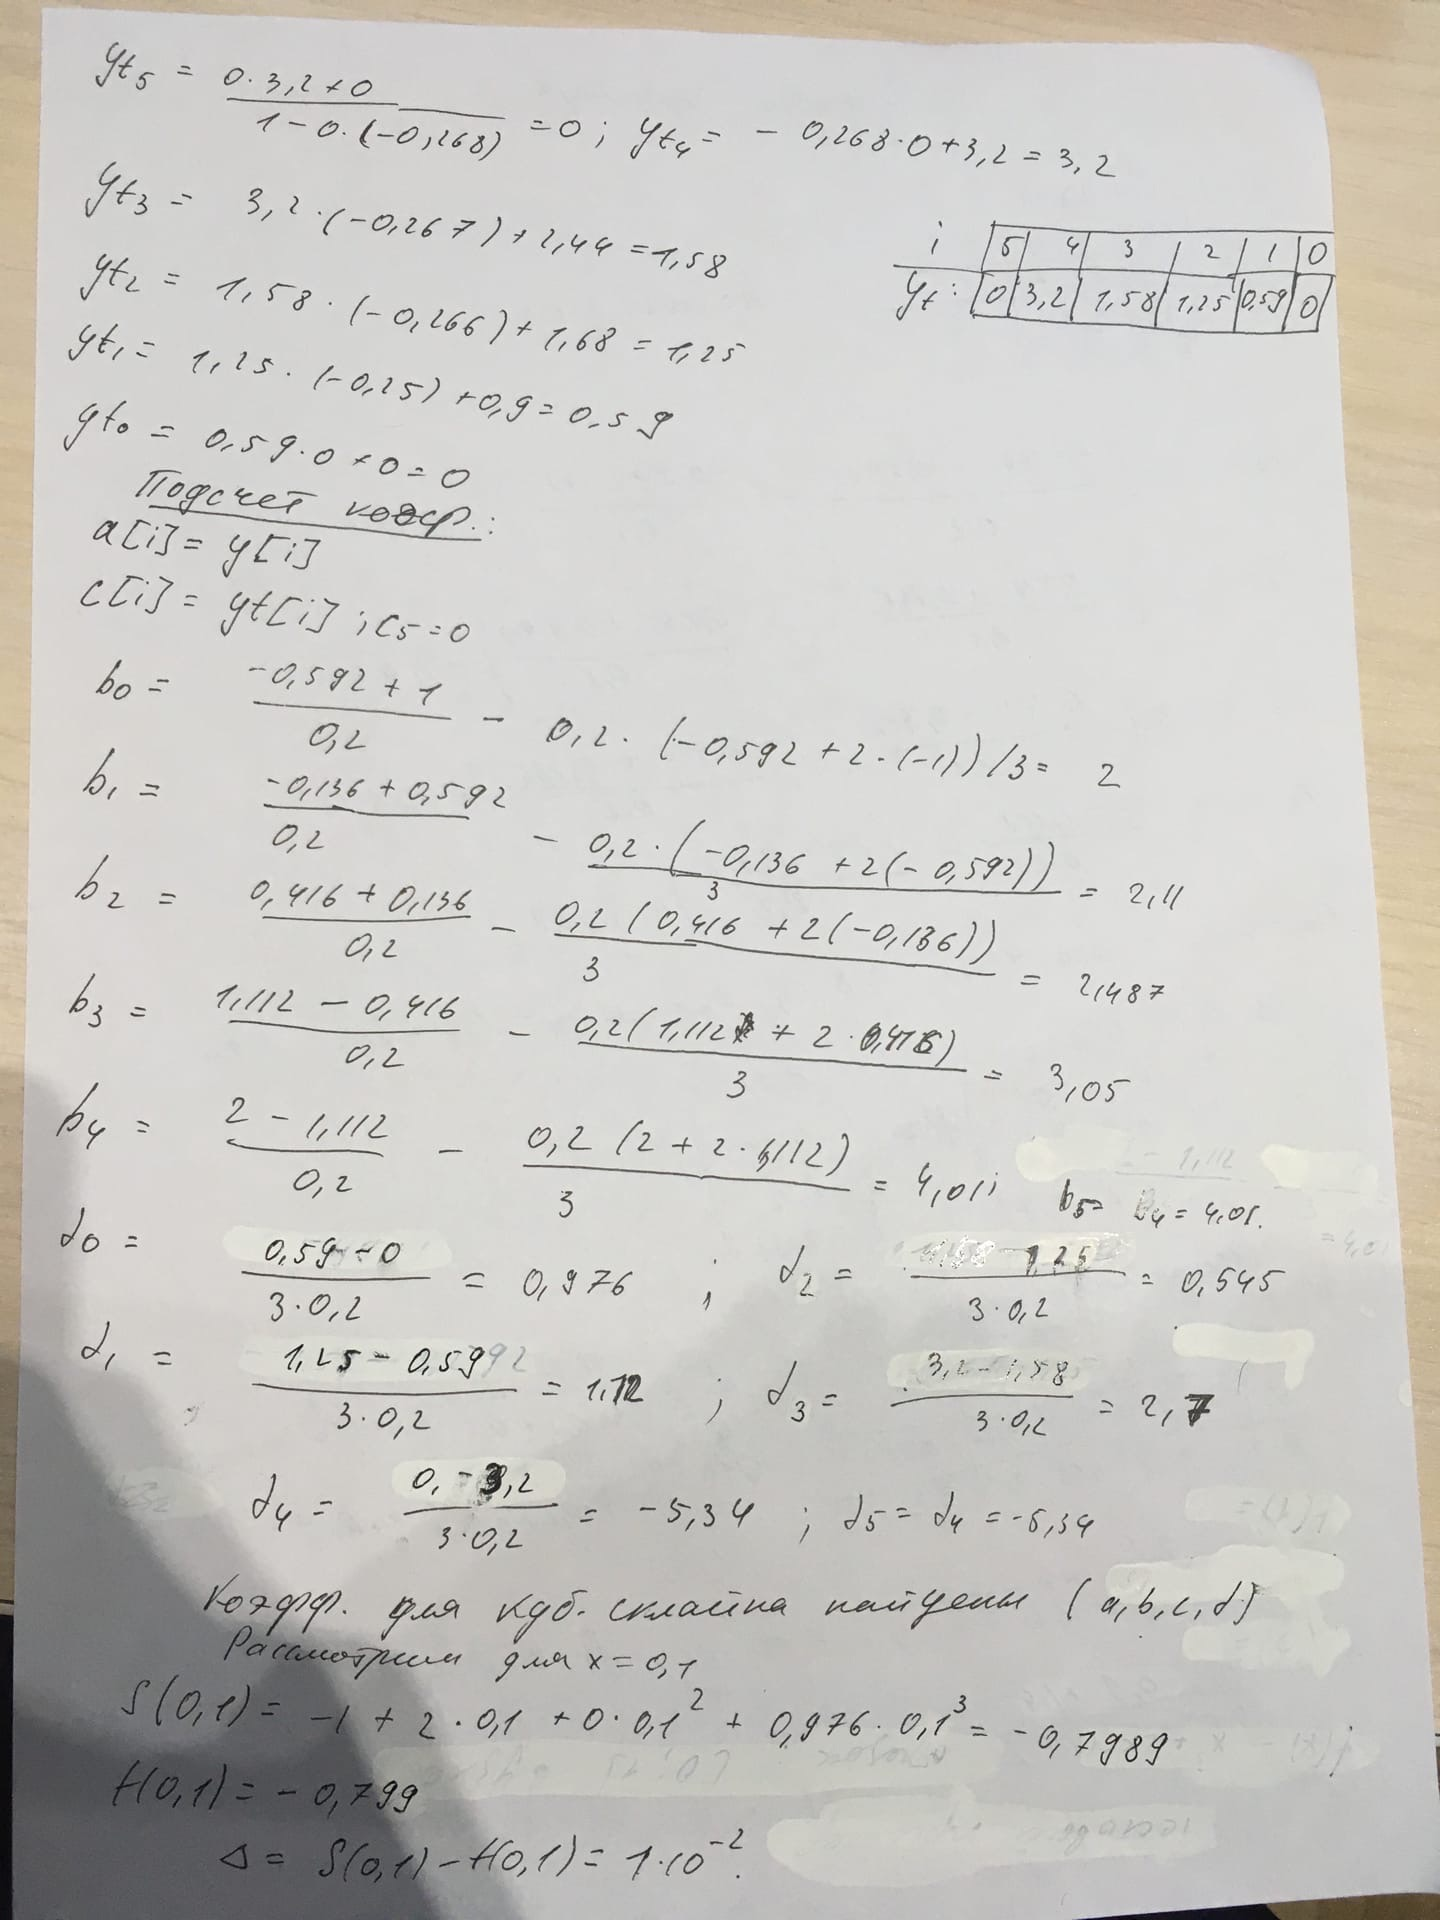 yt₅ = (0·3,2+0)/(1-0·(-0,268)) = 0; yt₄ = -0,268·0+3,2 = 3,2
yt₃ = 3,2·(-0,267)+2,44 = 1,58
i 5 4 3 2 1 0
yt: 0 3,2 1,58 1,25 0,59 0
yt₂ = 1,58·(-0,266)+1,68 = 1,25
yt₁ = 1,25·(-0,25)+0,9 = 0,59
yt₀ = 0,59·0+0 = 0
Подсчет коэф.:
a[i] = y[i]
c[i] = yt[i]; c₅=0
b₀ = (-0,592+1)/0,2 - 0,2·(-0,592+2·(-1))/3 = 2
b₁ = (-0,136+0,592)/0,2 - 0,2·(-0,136+2(-0,592))/3 = 2,11
b₂ = (0,416+0,136)/0,2 - 0,2(0,416+2(-0,136))/3 = 2,487
b₃ = (1,112-0,416)/0,2 - 0,2(1,112+2·0,416)/3 = 3,05
b₄ = (2-1,112)/0,2 - 0,2(2+2·1,112)/3 = 4,01; b₅ = b₄ = 4,01.
d₀ = (0,59-0)/(3·0,2) = 0,976; d₂ = (1,58-1,25)/(3·0,2) = 0,545
d₁ = (1,25-0,59)/(3·0,2) = 1,12; d₃ = (3,2-1,58)/(3·0,2) = 2,7
d₄ = (0,-3,2)/(3·0,2) = -5,34; d₅ = d₄ = -5,34
Коэфф. для куб. сплайна найдены (a,b,c,d)
Рассмотрим для x=0,1
S(0,1) = -1+2·0,1+0·0,1²+0,976·0,1³ = -0,7989
f(0,1) = -0,799
Δ = S(0,1)-f(0,1) = 1·10⁻².